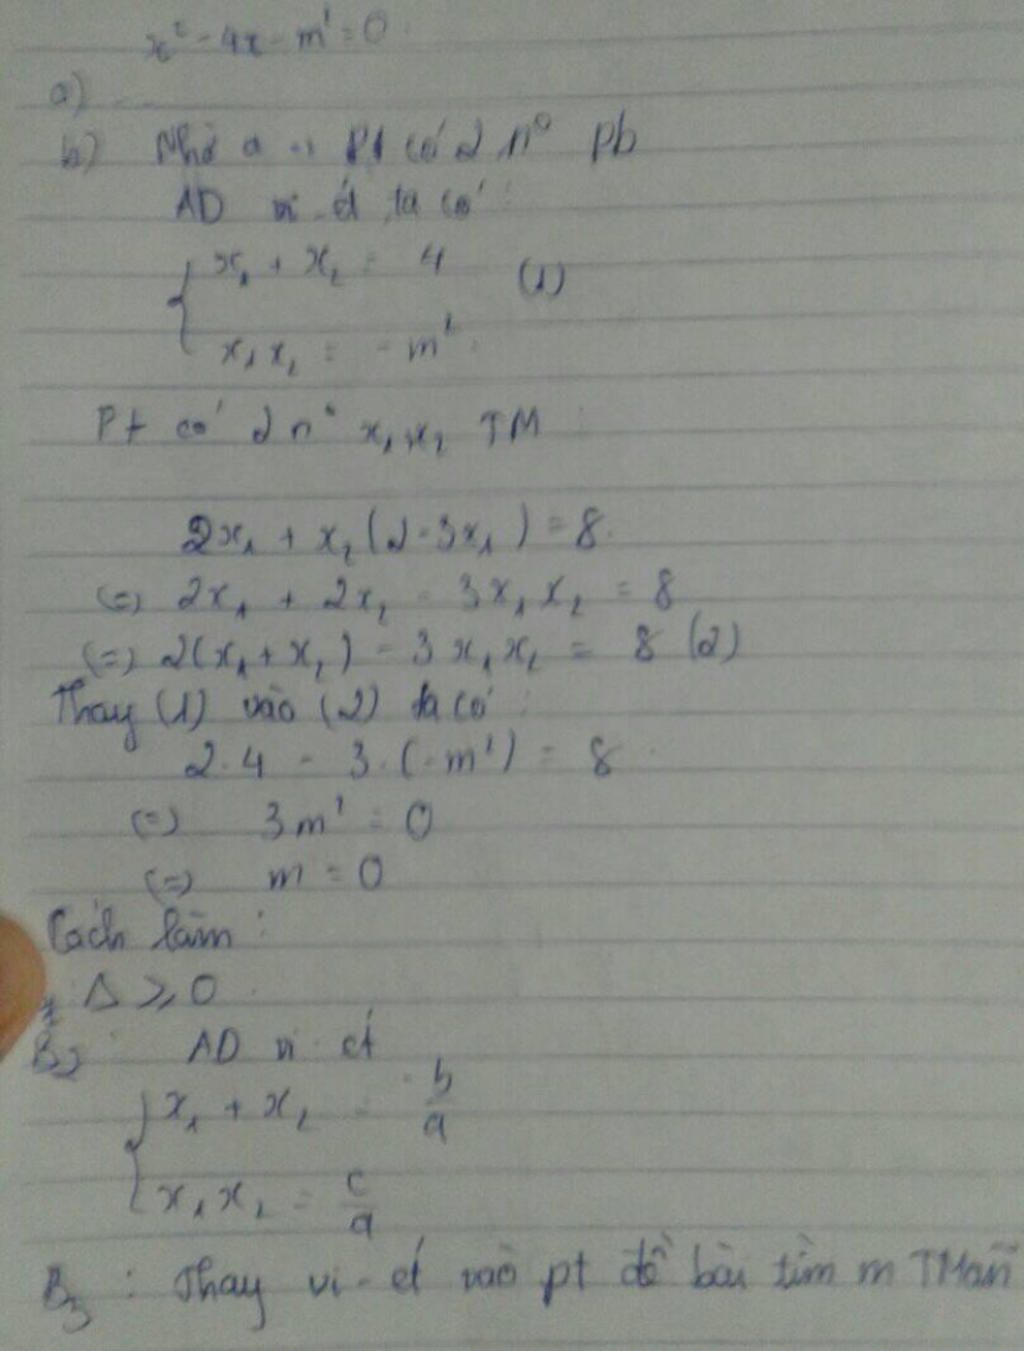 x² - 4x - m² = 0
a)
b) Nhờ a => Pt có 2 n° pb
AD vi-ét ta có :
{ x₁ + x₂ = 4
(1)
x₁x₂ = -m²
Pt có 2 n° x₁, x₂ TM :
2x₁ + x₂(2-3x₁) = 8
(=) 2x₁ + 2x₂ - 3x₁x₂ = 8
(=) 2(x₁+x₂) - 3x₁x₂ = 8 (2)
Thay (1) vào (2) ta có :
2.4 - 3.(-m²) = 8
(=) 3m² = 0
(=) m = 0
Cách làm :
Δ ⩾ 0
B₂ : AD vi-ét
{ x₁ + x₂ = -b/a
x₁x₂ = c/a
B₃ : Thay vi-ét vào pt đề bài tìm m TMãn